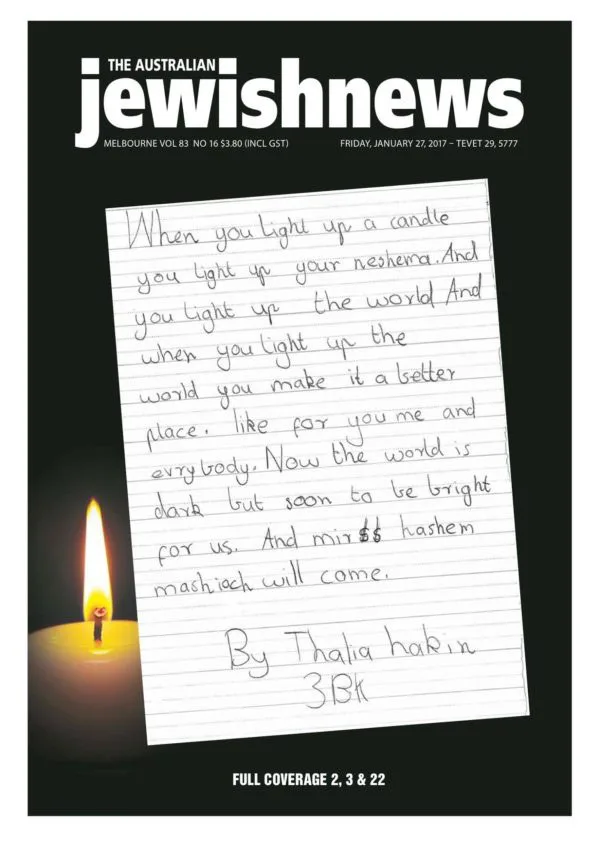 THE AUSTRALIAN
jewishnews
MELBOURNE VOL 83 NO 16 $3.80 (INCL GST) FRIDAY, JANUARY 27, 2017 – TEVET 29, 5777
When you light up a candle
you light up your neshema. And
you light up the world And
when you light up the
world you make it a better
place. like for you me and
evrybody. Now the world is
dark but soon to be bright
for us. And mir$$ hashem
mashiach will come.
By Thalia hakin
3BK
FULL COVERAGE 2, 3 & 22